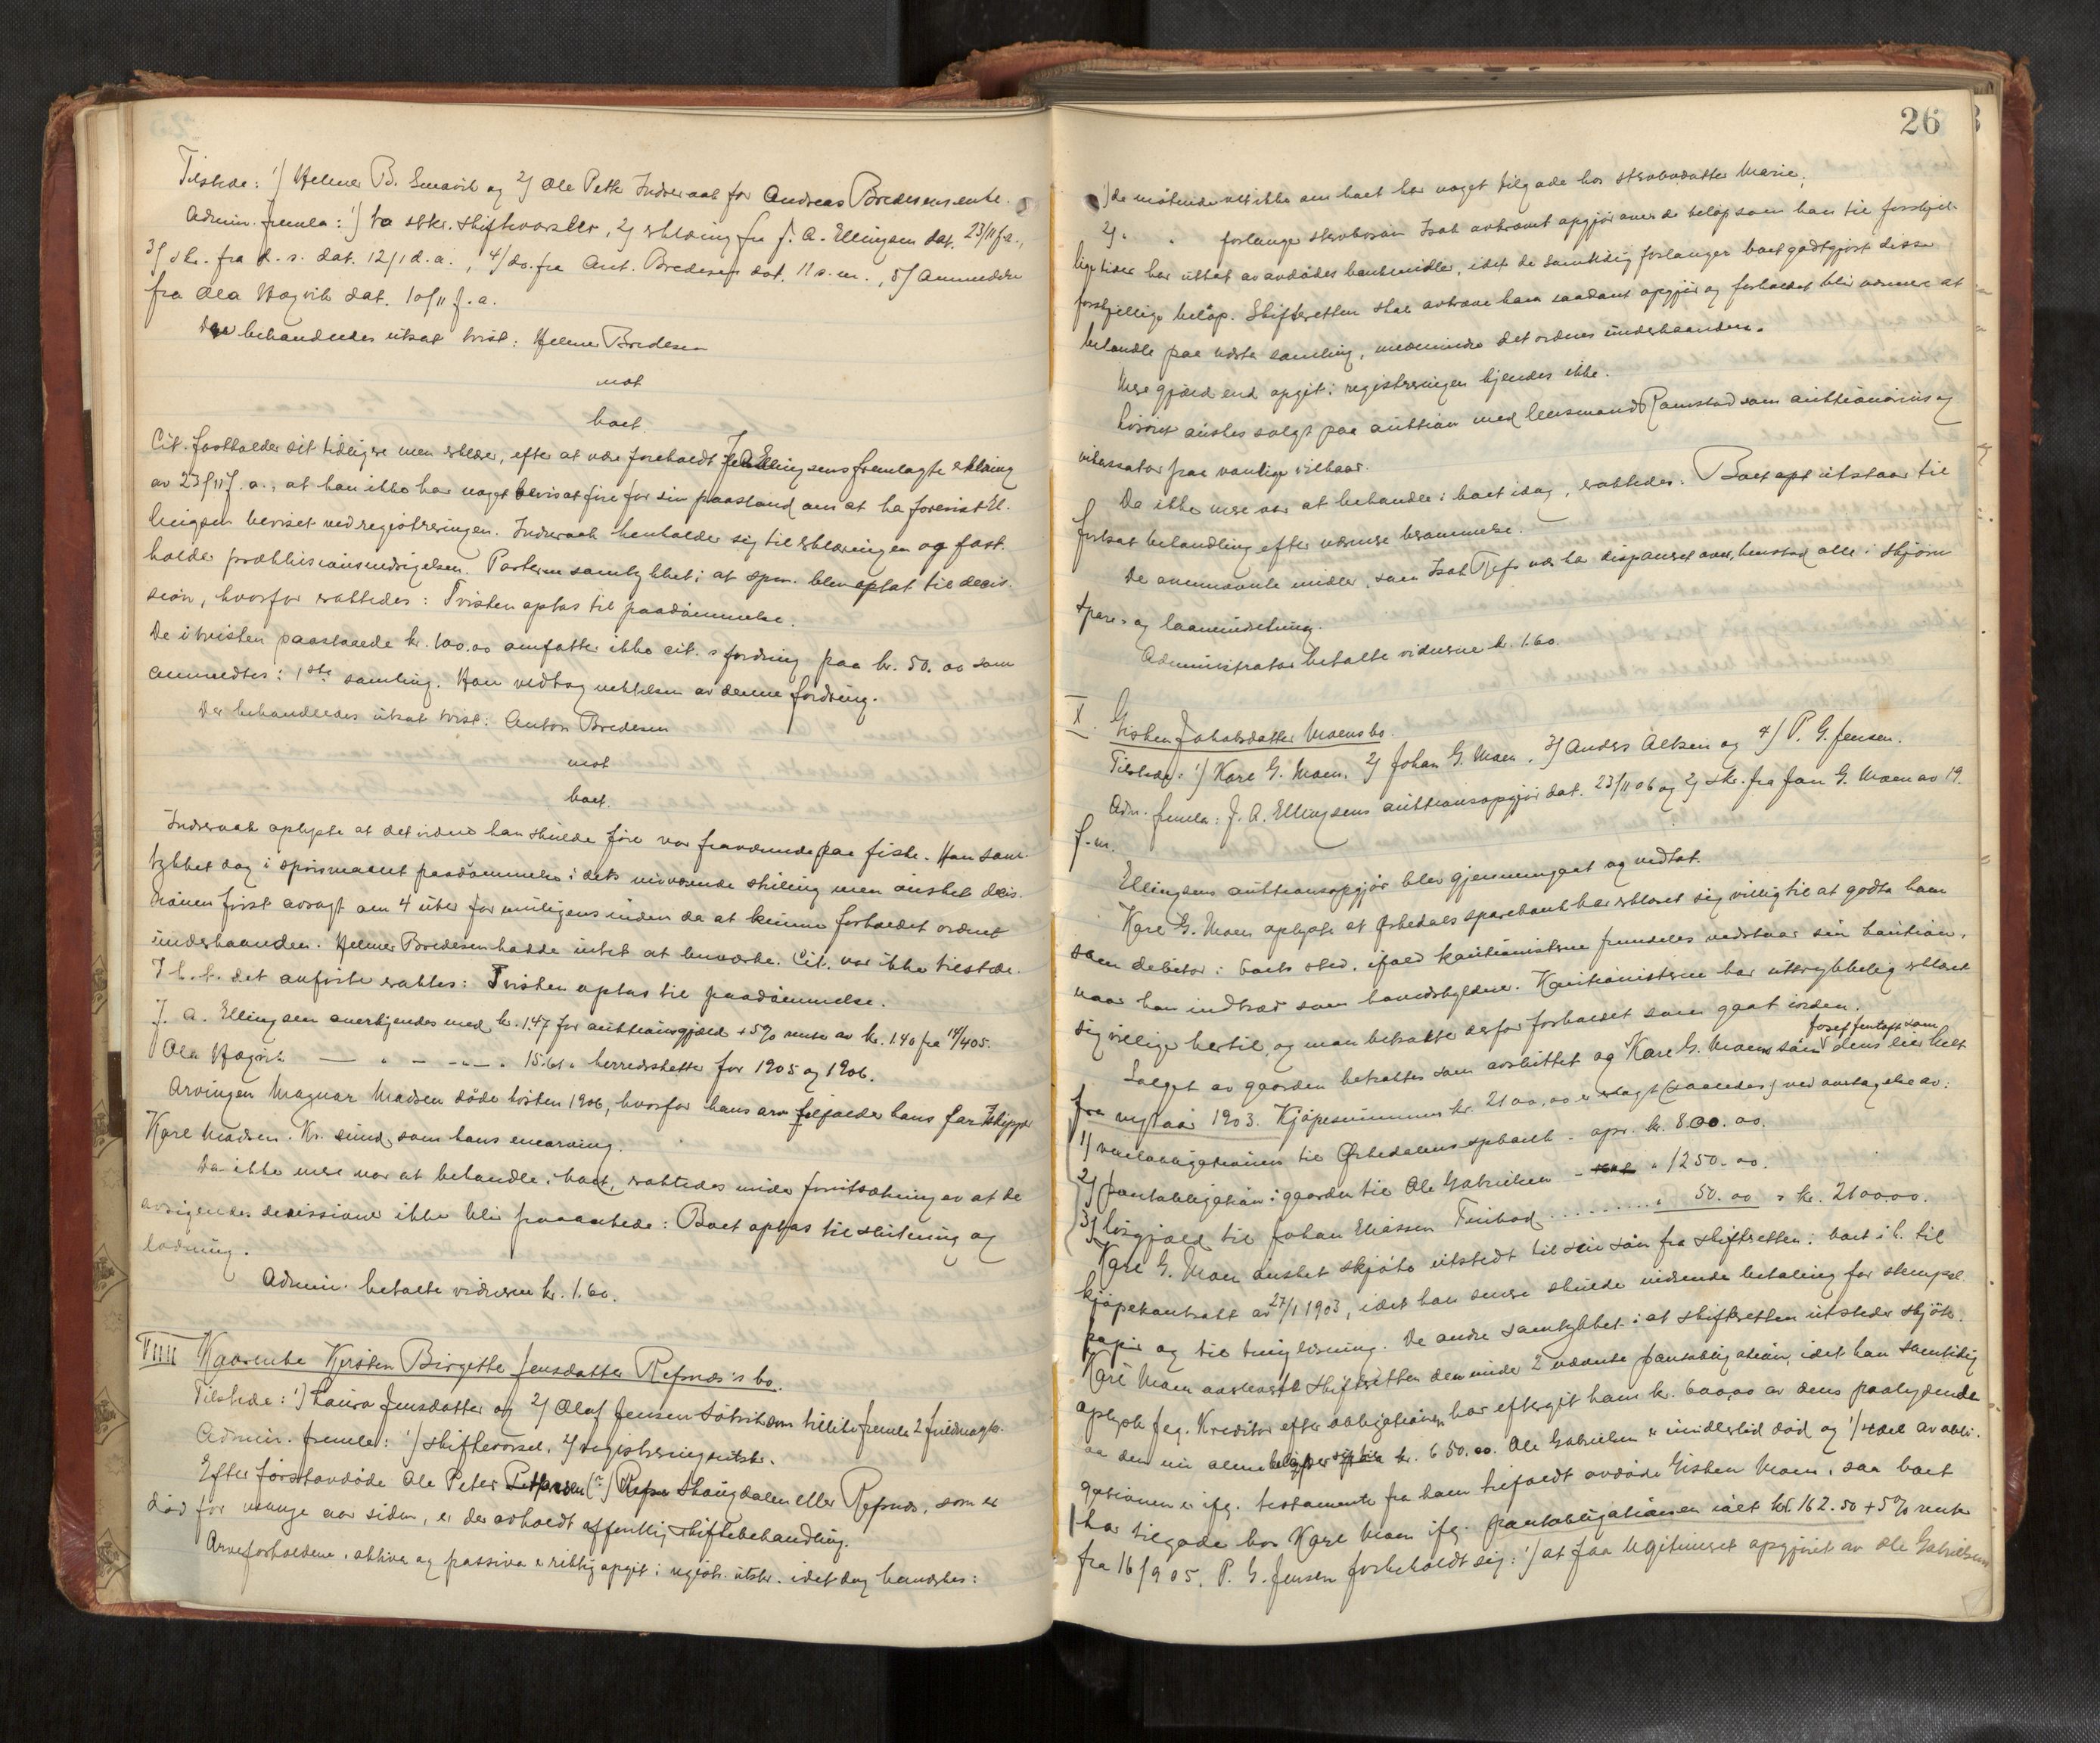 Tilstede: 1) Helmer B. Smevik og 2) Ole Peth Inderaal for Andreas Bredesens enke.
Admin. fremla: 1) to stkr. skiftevarsler, 2) erklæring fra J. A. Ellingsen dat. 23/11 f.a.,
3) skr. fra d. s. dat. 12/1 d.a., 4) do. fra Ant. Bredesen dat. 11 s.m., 5) Anmeldelse
fra Ola Hagvik dat. 10/11 f.a.
Der behandledes utsat tvist: Helmer Bredesen
mot
boet.
Cit. fastholder sit tidligere men erklærer, efter at være foreholdt J. A. Ellingsens fremlagte erklæring
av 23/11 f.a., at han ikke har noget bevis at føre for sin paastand om at ha forevist El-
lingsen beviset ved registreringen. Inderaal henholder sig til erklæringen og fast-
holder præklusionsindsigelsen. Parterne samtykket i at spm. blev optat til decis-
sion, hvorfor sattes: Tvisten optas til paadømmelse.
De i tvisten paastaaede kr. 100.00 omfatter ikke cit.s fordring paa kr. 50.00 som
anmeldtes i 1ste samling. Han vedtog nektelsen av denne fordring.
Der behandledes utsat tvist: Anton Bredesen
mot
boet.
Inderaal oplyste at det vidne han skulde føre var fraværende paa fiske. Han sam-
tykket dog i spørsmaalet paadømmelse i dets nuværende stilling men ønsket decis-
sionen først avsagt om 4 uker for muligens inden da at kunne forholdet ordnet
underhaanden. Helmer Bredesen hadde intet at bemerke. Cit. var ikke tilstede.
I h. t. det anførte sattes: Tvisten optas til paadømmelse.
J. A. Ellingsen anerkjendes med kr. 1.47 for auktionsgjæld + 5% rente av kr. 1.40 fra 14/4 05.
Ola Hagvik — " — — " — " 15.61 " herredsskatter for 1905 og 1906.
Arvingen Magnar Madsen døde høsten 1906, hvorfor hans arv tilfalder hans far Skipper
Karl Madsen. Kr. sund, som hans enearving.
Da ikke mere var at behandle i boet, sattes under forutsætning av at de
avsigendes decissioner ikke blir paaankede: Boet optas til slutning og
lodning.
Admin. betalte vidnerne kr. 1.60.
VIIII Kaarenke Kirsten Birgitte Jensdatter Refsnæs's bo.
Tilstede: 1) Laura Jensdatter og 2) Olaf Jensen Løkvik som tillike fremla 2 fuldmagter.
Admin. fremla: 1) skiftevarsel, 2) registreringsutskr.
Efter førstavdøde Ole Peter Pettersen (:) Skaugdalen eller Refsnæs, som er
død for mange aar siden, er der avholdt offentlig skiftebehandling.
Arveforholdene, aktiva og passiva er riktig opgit i registr. utskr. idet dog bemerkes:
26
1) de møtende vet ikke om boet har noget tilgode hos stervboets datter Marie,
2) " " forlanger stervbosøn Isak avkrævet opgjør over de beløp som han til forskjel-
lige tider har uttat av avdødes bankmidler, idet de samtidig forlanger boet godtgjort disse
forskjellige beløp. Skifteretten skal avkræve ham saadant opgjør og forholdet blir nærmere at
behandle paa næste samling, medmindre det ordnes underhaanden.
Mere gjæld end opgit i registreringen kjendes ikke.
Løsøret ønskes solgt paa auktion med lensmand Ramstad som auktionarius og
inkassator paa vanlige vilkaar.
Da ikke mere var at behandle i boet idag, sattes: Boet opt utstaar til
fortsat behandling efter nærmere berammelse.
De omnævnte midler, som Isak Refsnæs ha disponeret over, henstod alle i Skjørn
spare- og laaneindretning.
Administrator betalte vidnerne kr. 1.60.
X. Gisken Jakobsdatter Moens bo.
Tilstede: 1) Karl G. Moen, 2) Johan G. Moen, 3) Anders Olsen og 4) P. G. Jensen.
Adm. fremla: J. A. Ellingsens auktionsopgjør dat. 23/11 06 og 2) skr. fra Jan G. Moen av 19.
f.m.
Ellingsens auktionsopgjør blev gjennemgaat og vedtat.
Karl G. Moen oplyste at Ørkedals sparebank har erklæret sig villig til at godta ham
som debitor i boets sted, ifald kautionisterne fremdeles vedstaar sin kaution,
naar han indtræder som hovedskyldner. Kautionisterne har uttrykkelig erklæret
sig villige hertil, og man betrakte derfor forholdet som gaat iorden.
Salget av gaarden betraktes som avsluttet og Karl G. Moens søn Josef Jentoft som dens eier helt
fra nytaar 1903. Kjøpesummen kr. 2100.00 er erlagt (saaledes) ved overtagelse av:
1) vekselobligationen til Ørkedalens spbank – opr. kr. 800.00.
2) pantobligation i gaarden til Ole Gabrielsen – " 1250.00.
3) løsgjæld til Johan Eliassen Teribod . . . . . . . . " 50.00 = kr. 2100.00.
Karl G. Moen ønsket skjøte utstedt til sin søn fra skifteretten i boet i h. til
kjøpekontrakt av 27/1 1903, idet han senere skulde indsende betaling for stempel-
papir og til tinglysning. De andre samtykket i at skifteretten utsteder skjøte.
Karl Moen overleverte skifteretten den under 2 nævnte pantobligation, idet han samtidig
oplyste flg. Kreditor efter obligationen har eftergit ham kr. 600.00 av dens paalydende
saa den nu alene beløper sig til kr. 650.00. Ole Gabrielsen er imidlertid død og 1/4 del av obli-
gationen er iflg. testamente fra ham tilfaldt avdøde Gisken Moen, saa boet
har tilgode hos Karl Moen iflg. pantobligationen ialt kr. 162.50 + 5% rente
fra 16/9 05. P. G. Jensen forbeholdt sig: 1) at faa legitimeret opgjøret av Ole Gabrielsens